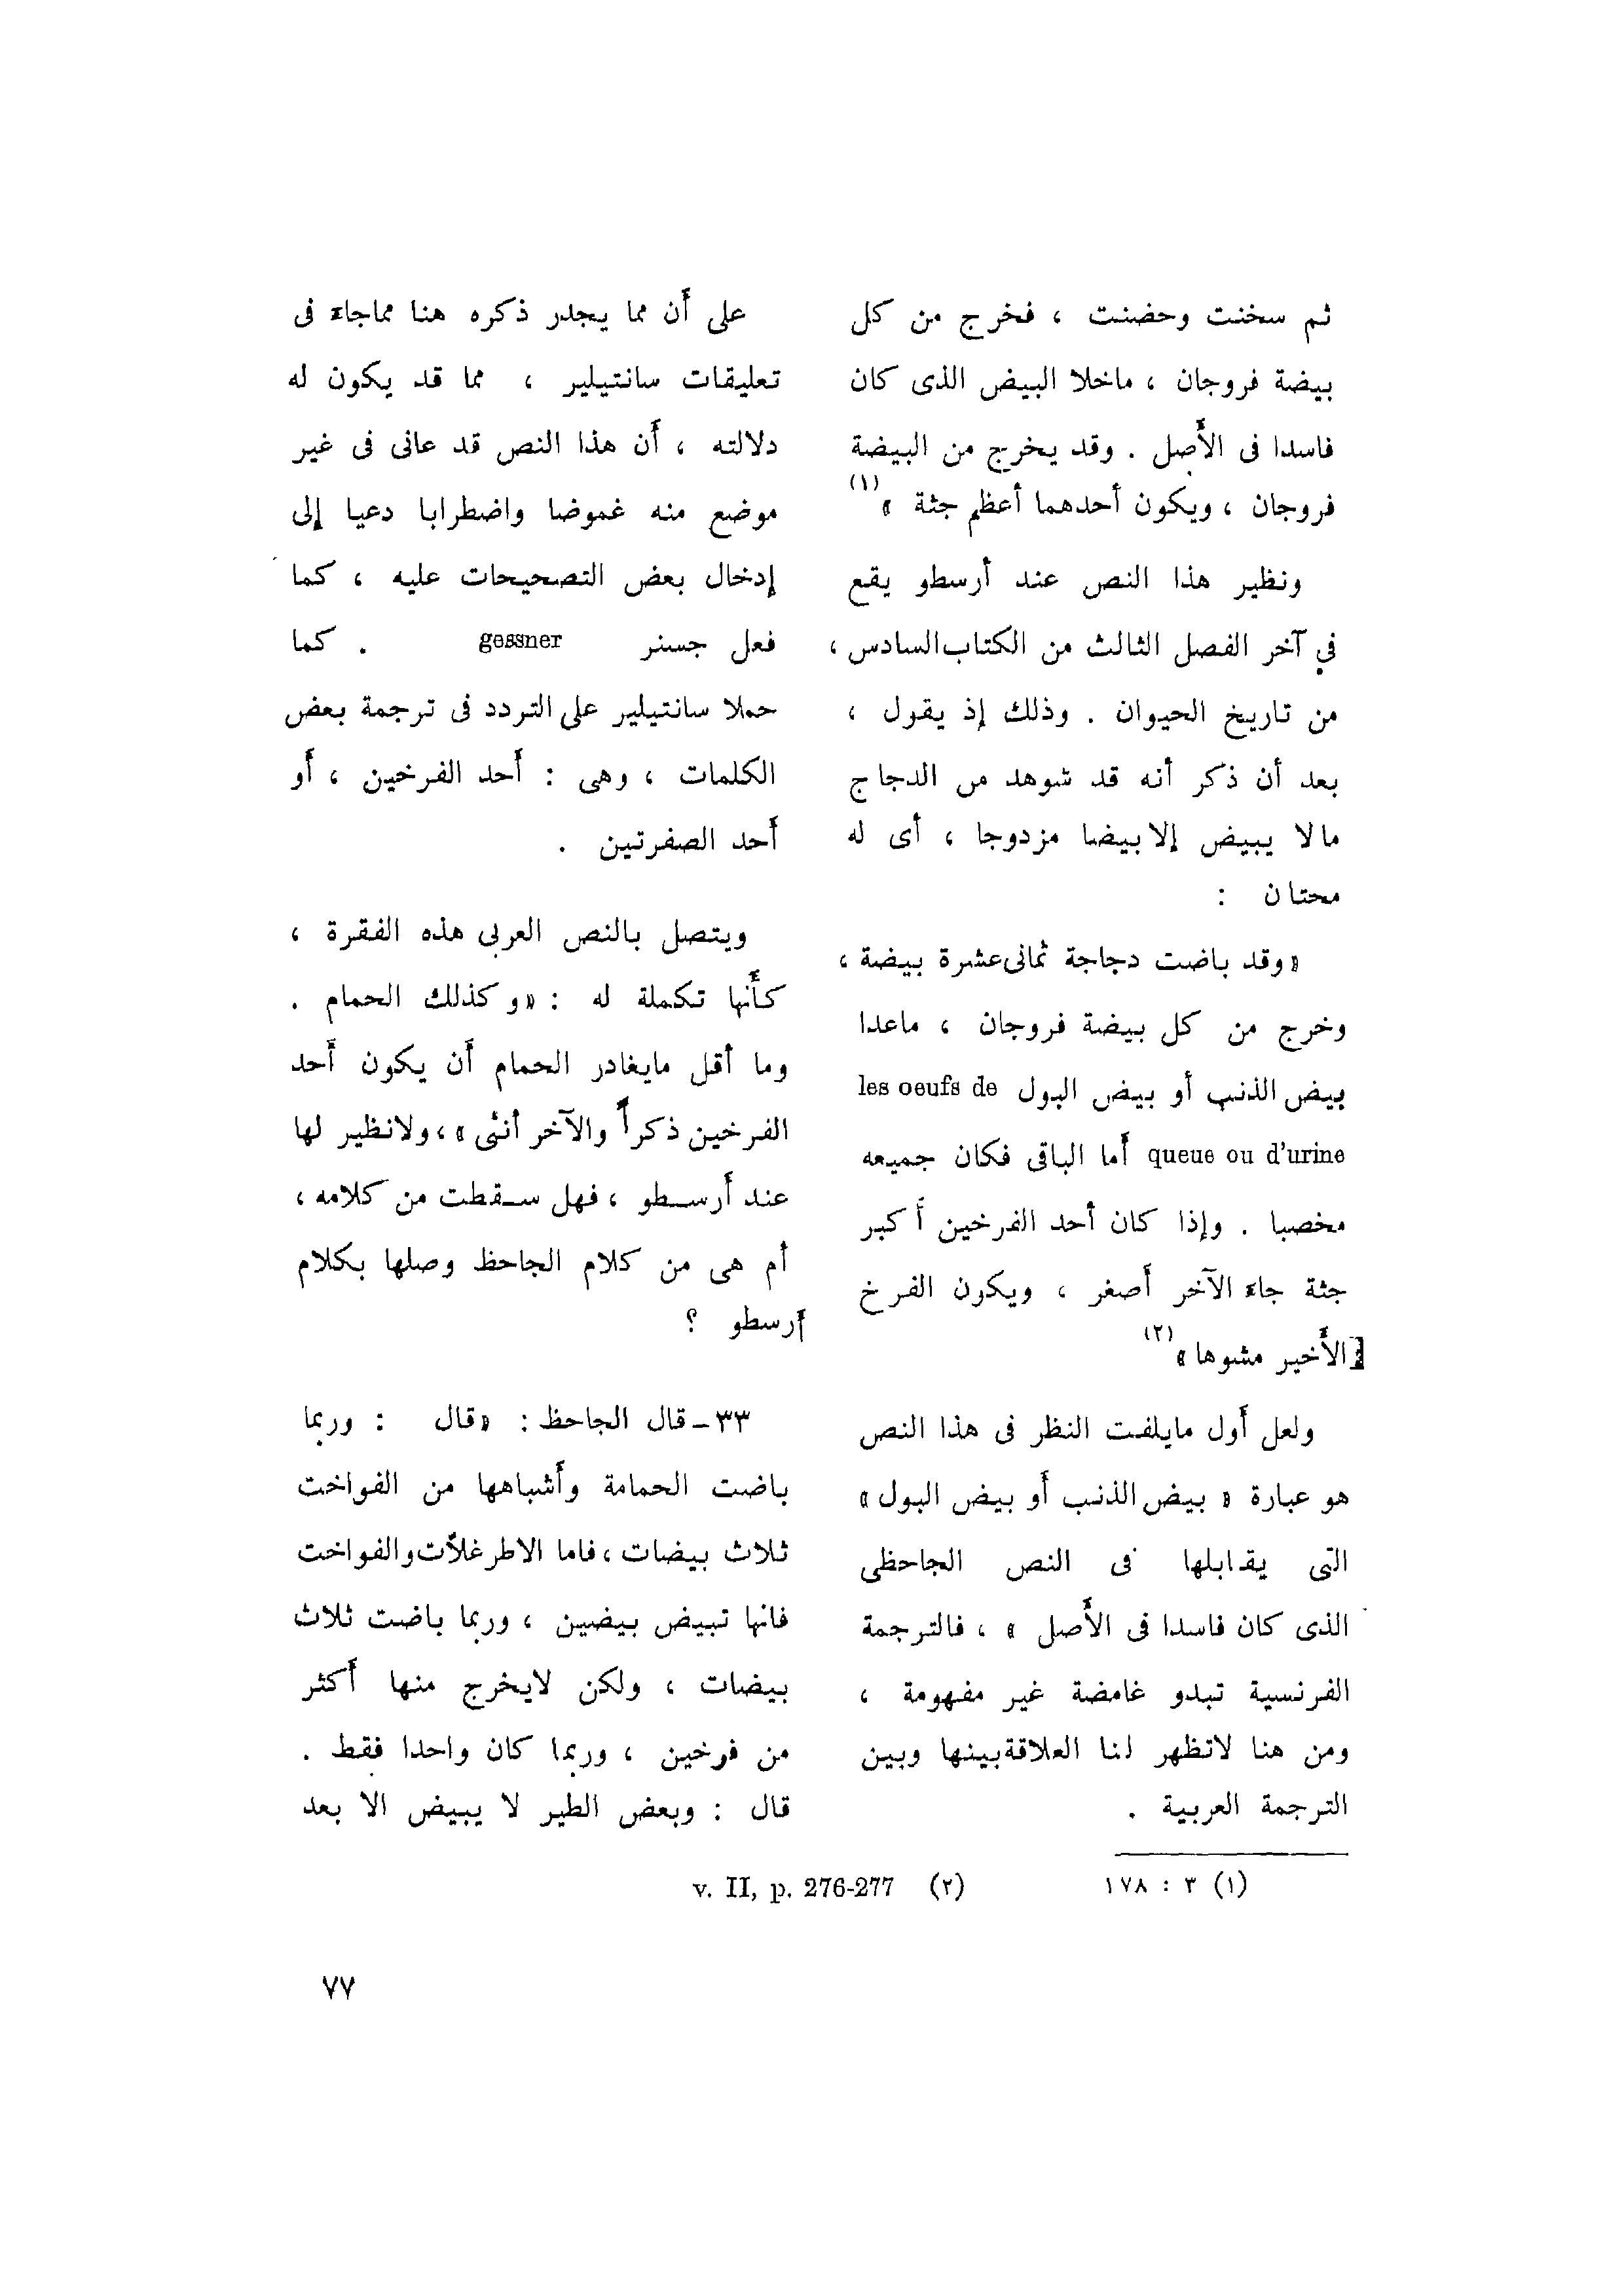 ثم سخنت وحضنت ، فخرج من كل
بيضة فروجان ، ماخلا البيض الذى كان
فاسدا فى الأصل . وقد يخرج من البيضة
فروجان ، ويكون أحدهما أعظم جثة » (١)
ونظير هذا النص عند أرسطو يقع
في آخر الفصل الثالث من الكتاب السادس ،
من تاريخ الحيوان . وذلك إذ يقول ،
بعد أن ذكر أنه قد شوهد من الدجاج
مالا يبيض إلا بيضا مزدوجا ، أى له
محتان :
« وقد باضت دجاجة ثمانى عشرة بيضة ،
وخرج من كل بيضة فروجان ، ماعدا
بيض الذنب أو بيض البول les oeufs de
queue ou d'urine أما الباقى فكان جميعه
مخصبا . وإذا كان أحد الفرخين أكبر
جثة جاء الآخر أصغر ، ويكون الفرخ
الأخير مشوها » (٢)
ولعل أول مايلفت النظر فى هذا النص
هو عبارة « بيض الذنب أو بيض البول »
التى يقابلها فى النص الجاحظى
الذى كان فاسدا فى الأصل » ، فالترجمة
الفرنسية تبدو غامضة غير مفهومة ،
ومن هنا لاتظهر لنا العلاقة بينها وبين
الترجمة العربية .
على أن مما يجدر ذكره هنا مماجاء فى
تعليقات سانتيلير ، مما قد يكون له
دلالته ، أن هذا النص قد عانى فى غير
موضع منه غموضا واضطرابا دعيا إلى
إدخال بعض التصحيحات عليه ، كما
فعل جسنر gessner . كما
حملا سانتيلير على التردد فى ترجمة بعض
الكلمات ، وهى : أحد الفرخين ، أو
أحد الصفرتين .
ويتصل بالنص العربى هذه الفقرة ،
كأنها تكملة له : « وكذلك الحمام .
وما أقل مايغادر الحمام أن يكون أحد
الفرخين ذكراً والآخر أنثى » ، ولانظير لها
عند أرسطو ، فهل سقطت من كلامه ،
أم هى من كلام الجاحظ وصلها بكلام
أرسطو ؟
٣٣ – قال الجاحظ : « قال : وربما
باضت الحمامة وأشباهها من الفواخت
ثلاث بيضات ، فاما الاطرغلاّت والفواخت
فانها تبيض بيضين ، وربما باضت ثلاث
بيضات ، ولكن لايخرج منها أكثر
من فرخين ، وربما كان واحدا فقط .
قال : وبعض الطير لا يبيض الا بعد
(١) ٣ : ١٧٨
(٢) v. II, p. 276-277
٧٧